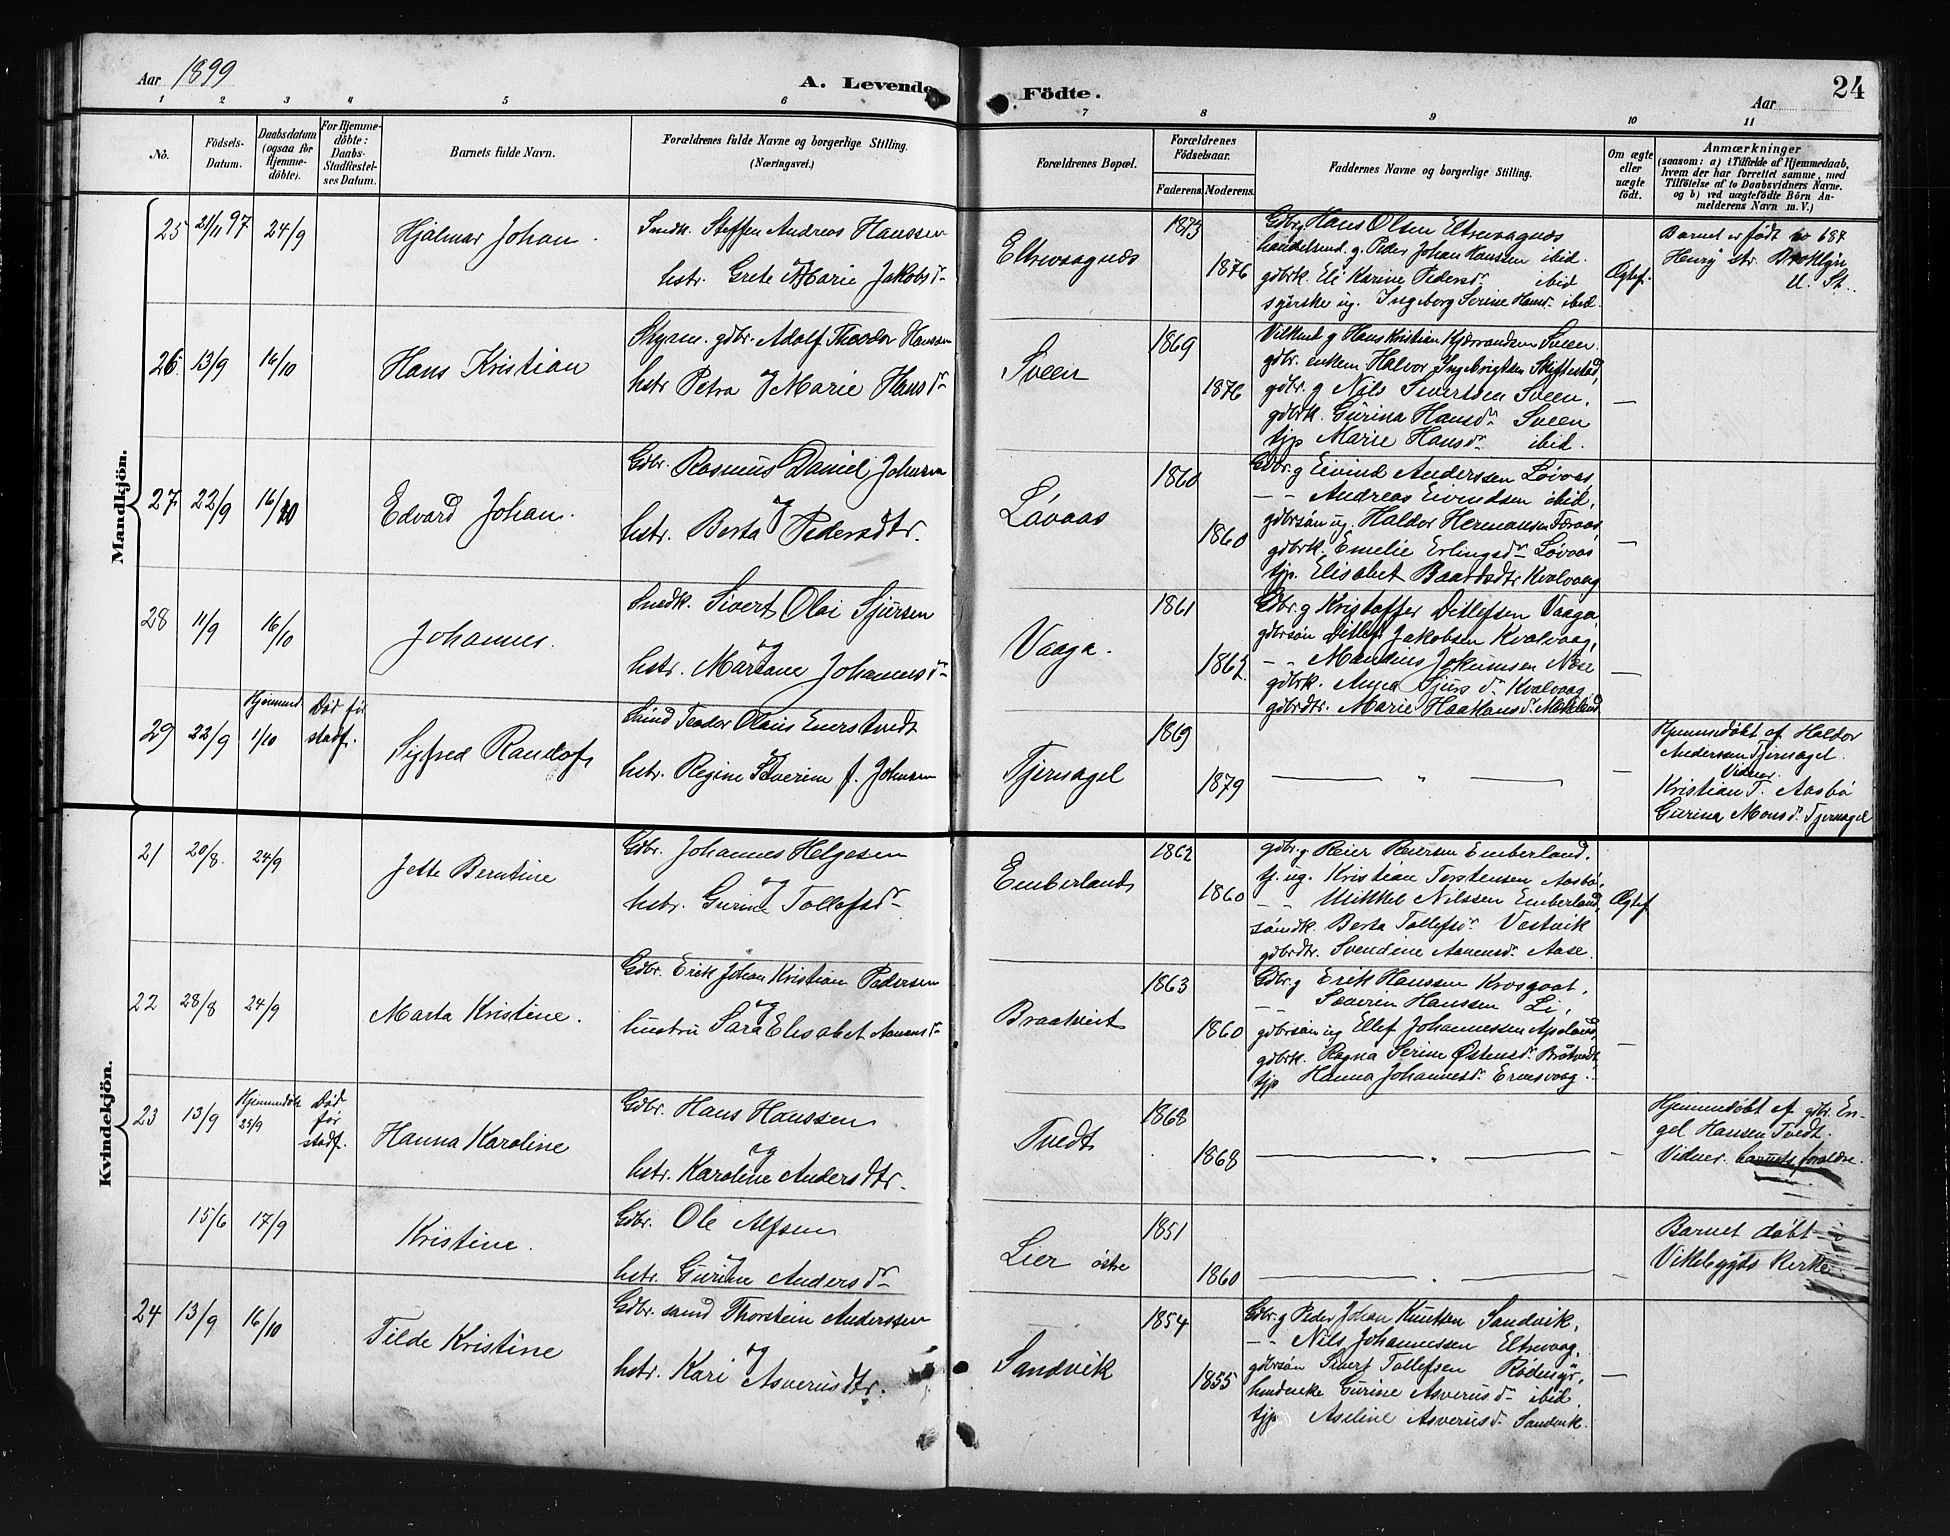 Aar 1899
A. Levende Födte.
Aar
24
1 2 3 4 5 6 7 8 9 10 11
No.
Födsels-Datum.
Daabsdatum (ogsaa för Hjemme-döbte).
For Hjemme-döbte: Daabs-Stadfæstel-ses Datum.
Barnets fulde Navn.
Forældrenes fulde Navne og borgerlige Stilling. (Næringsvei.)
Forældrenes Bopæl.
Forældrenes Födselsaar.
Faderens. Moderens.
Faddernes Navne og borgerlige Stilling.
Om ægte eller uægte födt.
Anmærkninger
(saasom: a) i Tilfælde af Hjemmedaab,
hvem der har forrettet samme, med
Tilföielse af to Daabsvidners Navne.
og b) ved uægtefödte Börn An-
melderens Navn m. V.)
Mandkjön.
25 21/11 97 24/9 Hjalmar Johan.
Smdk. Steffen Andreas Hanssen
og
hstr. Grete Marie Jakobsdr
Eltrevaagnæs
1873
1876
Gdbr. g Hans Olsen Eltrevaagnes
handelsmd. g. Peder Johan Hansen ibid.
gdbrk. Eli Karine Pedersdr ibid
syerske ug. Ingeborg Serine Hansdr ibid.
Ægtef.
Barnet er født no 687
Henry str. Brooklyn
U. St.
26 13/9 14/10 Hans Kristian
gdbr. Adolf Theodor Hanssen
og
hstr Petra Marie Hansdr
Sveen
1869
1876
g Hans Kristian Sveen
gdbr. enkem Halvor Ingebrigtsen
gdbr. g Nils Sivertsen Sveen.
gdbrk. Gurina Hansdr Sveen
tjp Marie Hansdr ibid.
—
27 22/9 16/10 Edvard Johan.
Gdbr. Rasmus Daniel Johnsen
og
hstr. Berta Pedersdtr.
Løvaas
1860
1860
Gdbr. g Eivind Anderssen Løvaas
— - Andreas Eivendsen ibid,
gdbrsøn ug. Haldor Hermansen Færaas
gdbrk. Emelie Erlingsdr Løvaas
tjp. Elisabet Baardsdtr Kvalvaag
—
28 11/9 16/10 Johannes.
Smdk. Sivert Olai Sjursen
og
hstr. Mariane Johannesdr
Vaaga.
1861
1862
Gdbr. g Kristoffer Ditlefsen Vaaga,
gdbrsøn Ditlef Jakobsen Kvalvaag,
— - Mandius Jokumsen Næse
gdbrk. Anna Sjursdr Kvalvaag
gdbrdtr. Marie Haakonsdr
—
29 22/9 Hjemmed 1/10 Død før stadf. Sigfred Randof
Smd Teodor Olaus Enerstvedt
og
hstr. Regine Severine f. Johnsen
Tjernagel
1869
1879
— " —
—
Hjemmedøbt af Haldor
Andersen Tjernagel.
Vidner.
Kristian T. Aasbø
Gurina Monsdr Tjernagel
Kvindekjön.
21 20/8. 24/9 Jette Berntine
Gdbr. Johannes Helgesen
og
hstr. Gurine Tollefsdr
Emberland
1862
1860
gdbr. g Reier Reiersen Emberland.
tj. ug. Kristian Torstensen Aasbø,
— - Mikkel Nilssen Emberland,
Berta Tollefsdr Vestvik
gdbrdtr. Svendine Aanensdr Aase.
Ægtef
22 28/8 24/9 Marta Kristine.
Gdbr. Erik Johan Kristian Pedersen
og
hustru Sara Elisabet Aanensdr
Braatveit
1863
1860
Gdbr. g Erik Hanssen Krosgaat,
— Severin Hanssen Li,
gdbrsøn ug Ellef Johannessen Apeland,
gdbrk. Ragna Serine Østensdr Bråtvedt
tjp Hanna Johannesdr Ervesvaag.
—
23 13/9 Hjemmedøbt 25/9 Død før stadf. Hanna Karoline
Gdbr. Hans Hanssen
og
hstr. Karoline Andersdtr.
Tvedt
1868
1868
— " —
—
Hjemmedøbt af gdbr. En-
gel Hansen Tvedt.
Vidner. barnets forældre.
15/6 17/9 Kristine.
Gdbr. Ole Alfsen
og
hstr. Gurine Andersdr
Lier østre
1851
1860
— " —
—
Barnet døbt i
Vikebygds Kirke
24 13/9 16/10 Tilde Kristine
Gdbr. smd Thorstein Anderssen
og
hstr. Kari Asverusdtr.
Sandvik
1854
1855
Gdbr. g Peder Johan Knutsen Sandvik,
— - Nils Johannessen Eltrevaag,
gdbrsøn Sivert Tollefsen
Gurine Asverusdr ibid,
tjp Aseline Asverusdr Sandvik.
—